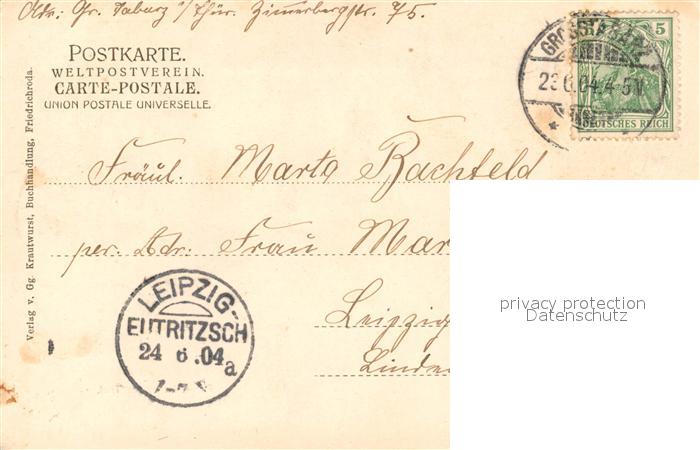 Adr: Gr. Tabarz i/Thür. Zimmerbergstr. 75.
POSTKARTE.
WELTPOSTVEREIN.
CARTE-POSTALE.
UNION POSTALE UNIVERSELLE.
GROSSTABARZ
23 6.04.4-5N.
5
DEUTSCHES REICH
Verlag v. Gg. Krautwurst, Buchhandlung, Friedrichroda.
Fräul. Marta Bachfeld
per. Adr. Frau Mar
Leipzig
Linde
LEIPZIG-
EUTRITZSCH
24 6 .04
a
privacy protection
Datenschutz